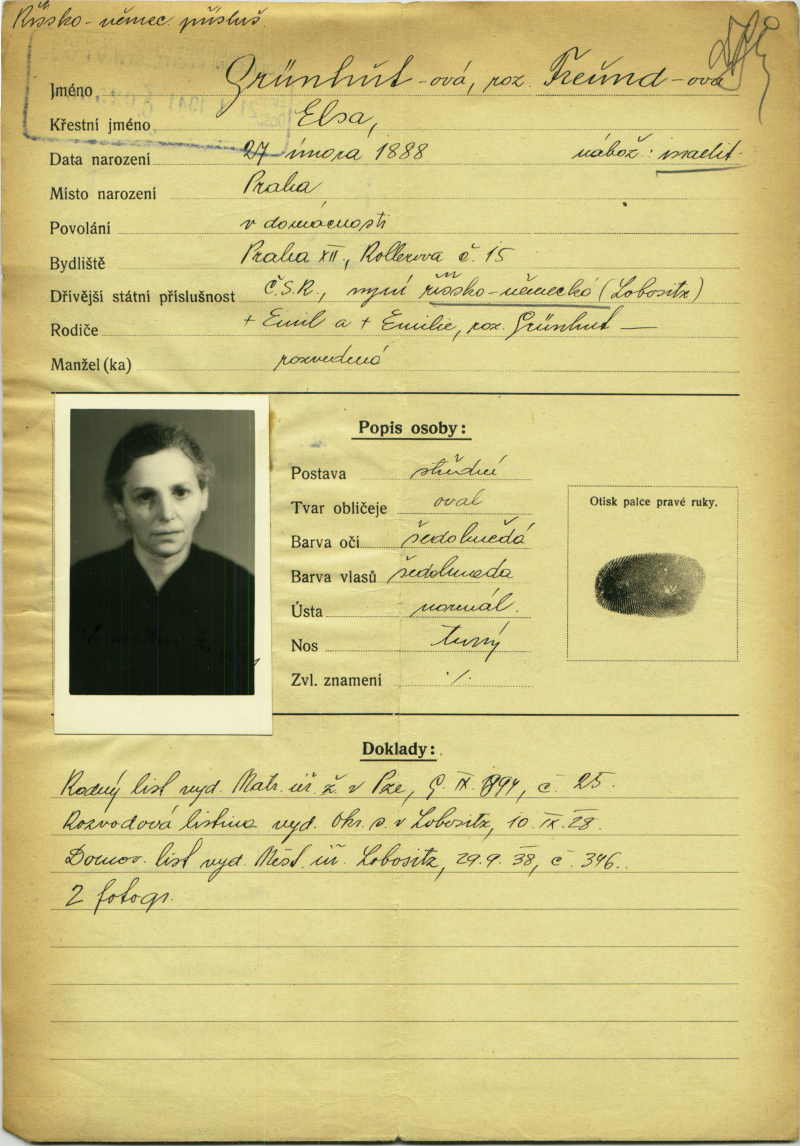 Říšsko-němec. přísluš
Jméno Grünhut-ová, roz. Freund-ová
Křestní jméno Elsa,
Data narození 27 února 1888 nábož: israelit.
Místo narození Praha
Povolání v domácnosti
Bydliště Praha XII, Rollerova č. 15
Dřívější státní příslušnost Č.S.R., nyní říšsko-německá (Lobositz)
Rodiče + Emil a + Emilie, roz. Grünhut —
Manžel (ka) rozvedená
Popis osoby:
Postava střední
Tvar obličeje oval
Barva očí šedohnědá
Barva vlasů šedohneda
Ústa normál.
Nos
Zvl. znamení ./.
Otisk palce pravé ruky.
Doklady:
Rodný list vyd. Matr. úř. ž. v Pze, 9. IX. 1894, č. 25.
Rozvodová listina vyd. Okr. s. v Lobositz, 10. IX. 28.
Domov. list vyd. Měst. úř. Lobositz, 29.9.38, č. 346.
2 fotogr.